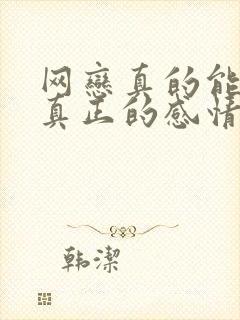 网戀真的能
真正的感情
韩潔